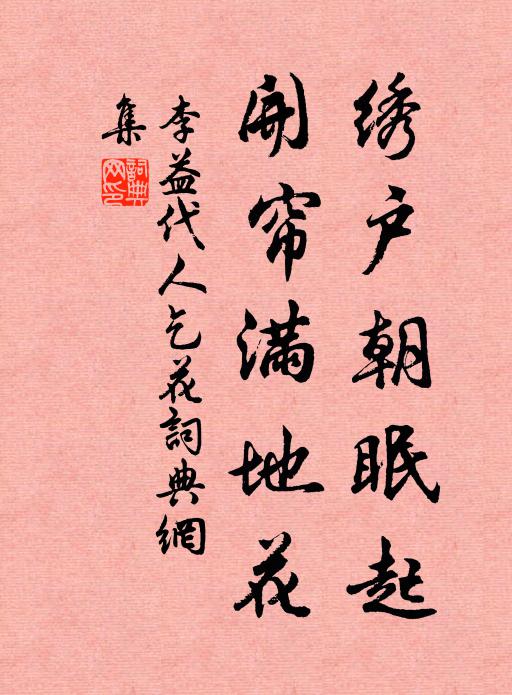 绣户朝眠起
开帘满地花
李益代人乞花詞典網
集
詞典网印